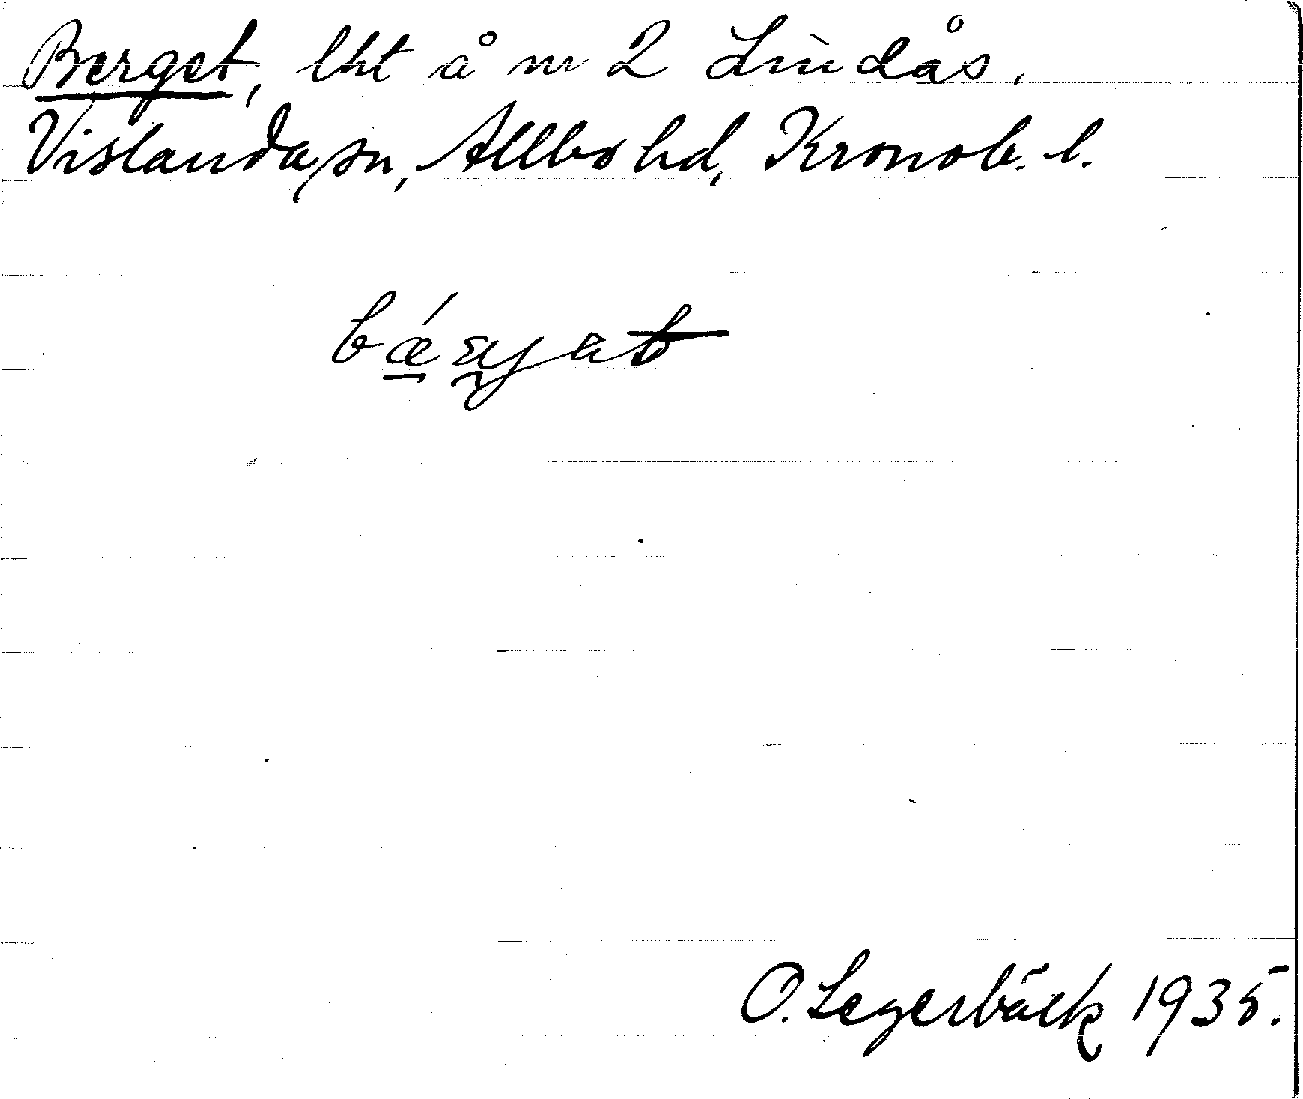 Berget, lht å nr 2 Lindås.
Vislanda sn, Allbo hd, Kronob. l.
bǽrjat
O. Legerbäck 1935.